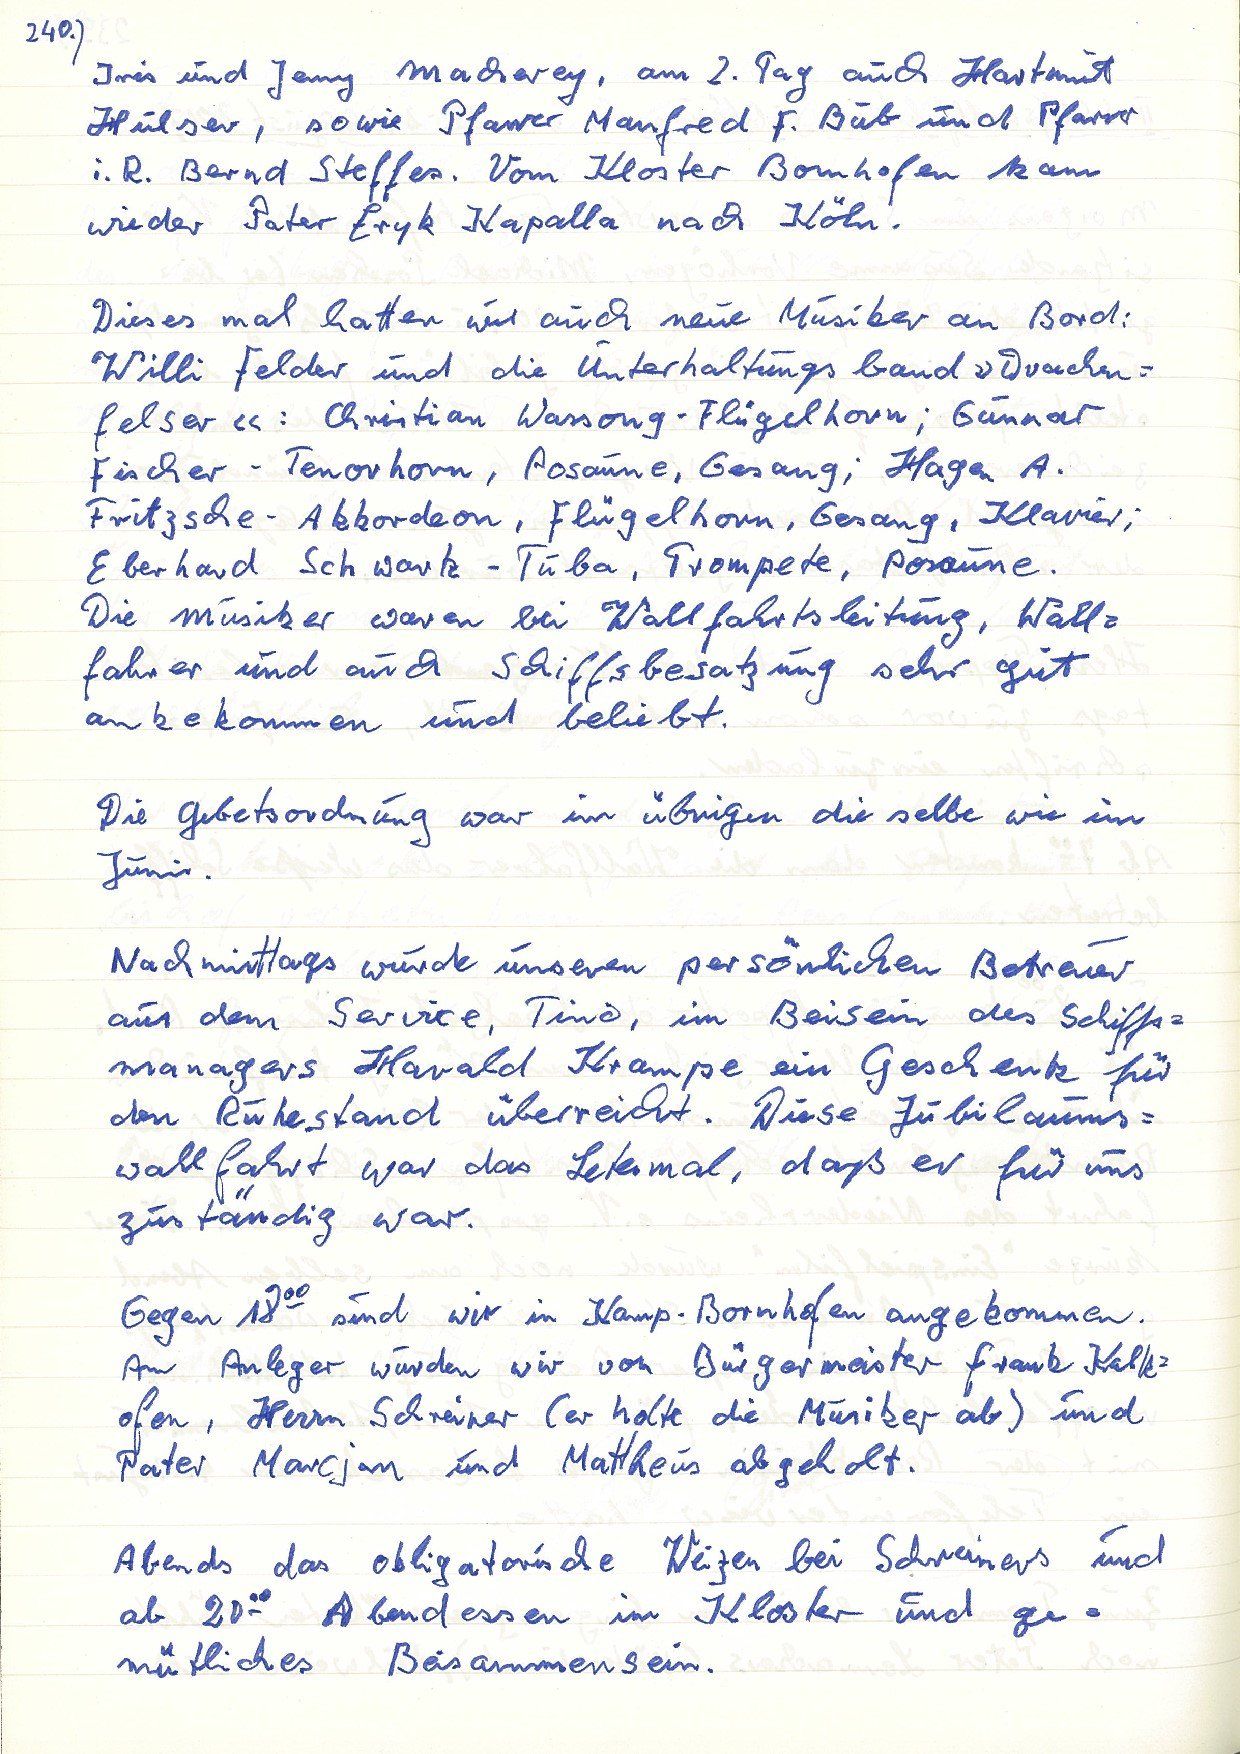 240.)
Iris und Jenny Macherey, am 2. Tag auch Hartmut
Hülser, sowie Pfarrer Manfred F. Büb und Pfarrer
i.R. Bernd Steffes. Vom Kloster Bornhofen kam
wieder Pater Eryk Kapalla nach Köln.
Dieses mal hatten wir auch neue Musiker an Bord:
Willi Felder und die Unterhaltungsband »Drachen=
felser«: Christian Wassong - Flügelhorn; Gunnar
Fischer - Tenorhorn, Posaune, Gesang; Hagen A.
Fritzsche - Akkordeon, Flügelhorn, Gesang, Klavier;
Eberhard Schwartz - Tuba, Trompete, Posaune.
Die Musiker waren bei Wallfahrtsleitung, Wall=
fahrer und auch Schiffsbesatzung sehr gut
ankekommen und beliebt.
Die Gebetsordnung war im übrigen die selbe wie im
Juni.
Nachmittags wurde unseren persönlichen Betreuer
aus dem Service, Tino, im Beisein des Schiffs=
managers Harald Krampe ein Geschenk für
den Ruhestand überreicht. Diese Jubiläums=
wallfahrt war das Letzemal, daß er für uns
zuständig war.
Gegen 18⁰⁰ sind wir in Kamp-Bornhofen angekommen.
Am Anleger wurden wir von Bürgermeister Frank Kalk=
ofen, Herrn Schreiner (er holte die Musiker ab) und
Pater Marcjan und Mattheus abgeholt.
Abends das obligatorische Weizen bei Schreiners und
ab 20⁰⁰ Abendessen im Kloster und ge=
mütliches Beisammensein.